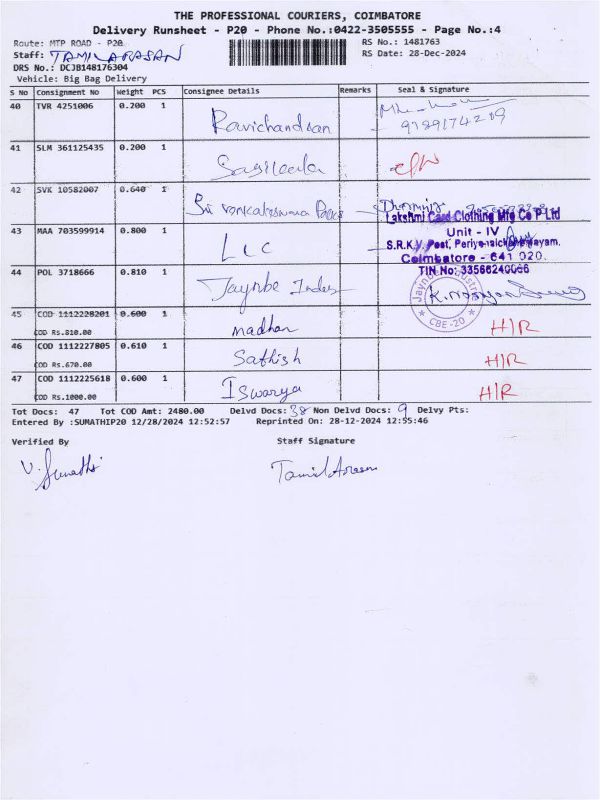 THE PROFESSIONAL COURIERS, COIMBATORE
Delivery Runsheet - P20 - Phone No.:0422-3505555 - Page No.:4
Route: MTP ROAD - P20
RS No.: 1481763
Staff: TAMILARASAN
RS Date: 28-Dec-2024
DRS No.: DCJB148176304
Vehicle: Big Bag Delivery
S No Consignment No Weight PCS Consignee Details Remarks Seal & Signature
40 TVR 4251006 0.200 1 Ravichandran
9789174209
41 SLM 361125435 0.200 1
42 SVK 10582007 0.640 1 Sri venkateswara
Lakshmi Card Clothing Mfg Co P Ltd
43 MAA 703599914 0.800 1 LIC Unit - IV
S.R.K.V. Post, Periyanaickenpalayam.
Coimbatore - 641 020.
TIN No: 33566240066
44 POL 3718666 0.810 1 Jaynbe Indus
CBE -20
45 COD 1112228201 0.600 1 madhan H/R
COD Rs.810.00
46 COD 1112227805 0.610 1 Sathish H/R
COD Rs.670.00
47 COD 1112225618 0.600 1 Iswarya H/R
COD Rs.1000.00
Tot Docs: 47 Tot COD Amt: 2480.00 Delvd Docs: 38 Non Delvd Docs: 9 Delvy Pts:
Entered By :SUMATHIP20 12/28/2024 12:52:57 Reprinted On: 28-12-2024 12:55:46
Verified By Staff Signature
V. Sumathi